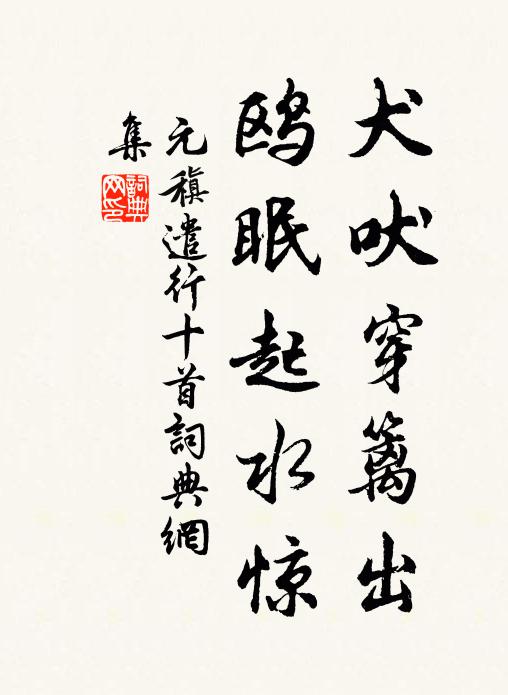 犬吠穿篱出
鸥眠起水惊
元稹遣行十首詞典網
集
詞典
网印